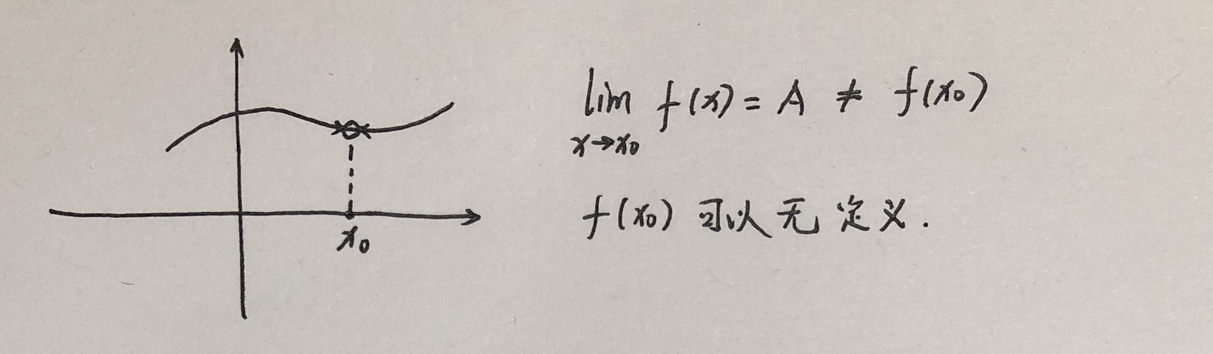 x₀
lim f(x) = A ≠ f(x₀)
x→x₀
f(x₀) 可以无定义.